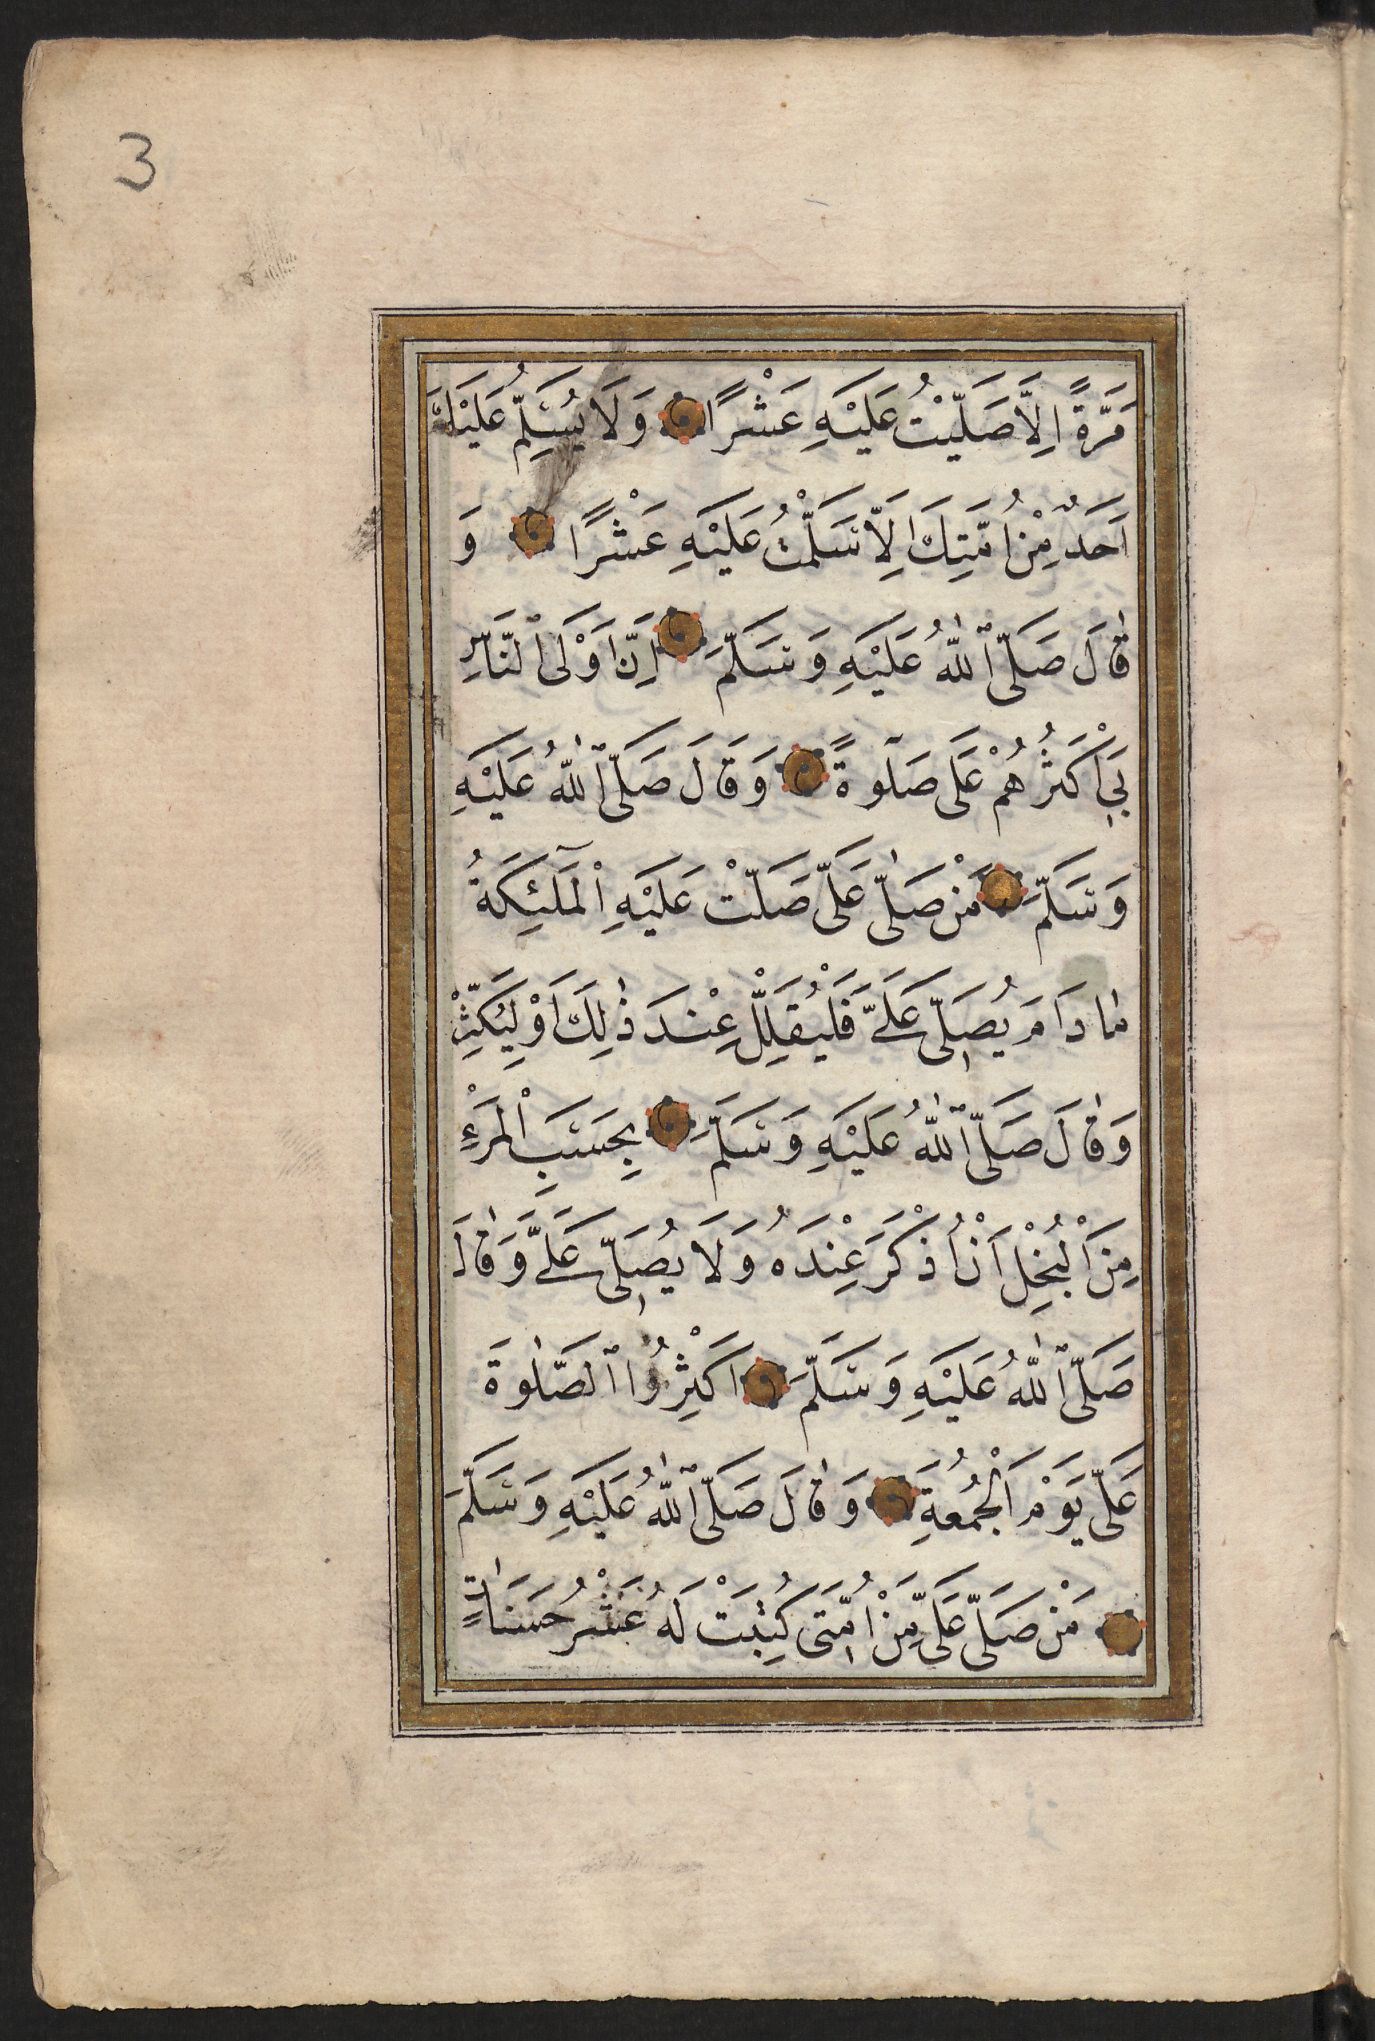 3
مَرَّةً اِلَّا صَلَّيْتُ عَلَيْهِ عَشْرًا وَلَا يُسَلِّمُ عَلَيْكَ
اَحَدٌ مِنْ اُمَّتِكَ اِلَّا سَلَّمْتُ عَلَيْهِ عَشْرًا وَ
قٰالَ صَلَّى ٱللّٰهُ عَلَيْهِ وَسَلَّمَ اِنَّ اَوْلَى ٱلنَّاسِ
بِىٓ اَكْثَرُهُمْ عَلَىَّ صَلٰوةً وَقَالَ صَلَّى ٱللّٰهُ عَلَيْهِ
وَسَلَّمَ مَنْ صَلّٰى عَلَىَّ صَلَّتْ عَلَيْهِ اْلمَلٰٓئِكَةُ
مٰا دَامَ يُصَلِّى عَلَىَّ فَلْيُقَلِّلْ عِنْدَ ذٰلِكَ اَوْ لِيُكَثِّرْ
وَقٰالَ صَلَّى ٱللّٰهُ عَلَيْهِ وَسَلَّمَ بِحَسَبِ اْلمَرْءِ
مِنَ اْلبُخْلِ اَنْ اُذْكَرَ عِنْدَهُ وَلَا يُصَلِّى عَلَىَّ وَقٰالَ
صَلَّى ٱللّٰهُ عَلَيْهِ وَسَلَّمَ اَكْثِرُوا ٱلصَّلٰوةَ
عَلَىَّ يَوْمَ اْلجُمُعَةِ وَقٰالَ صَلَّى ٱللّٰهُ عَلَيْهِ وَسَلَّمَ
مَنْ صَلَّى عَلَىَّ مِنْ اُمَّتِى كُتِبَتْ لَهُ عَشْرُ حَسَنَاتٍ